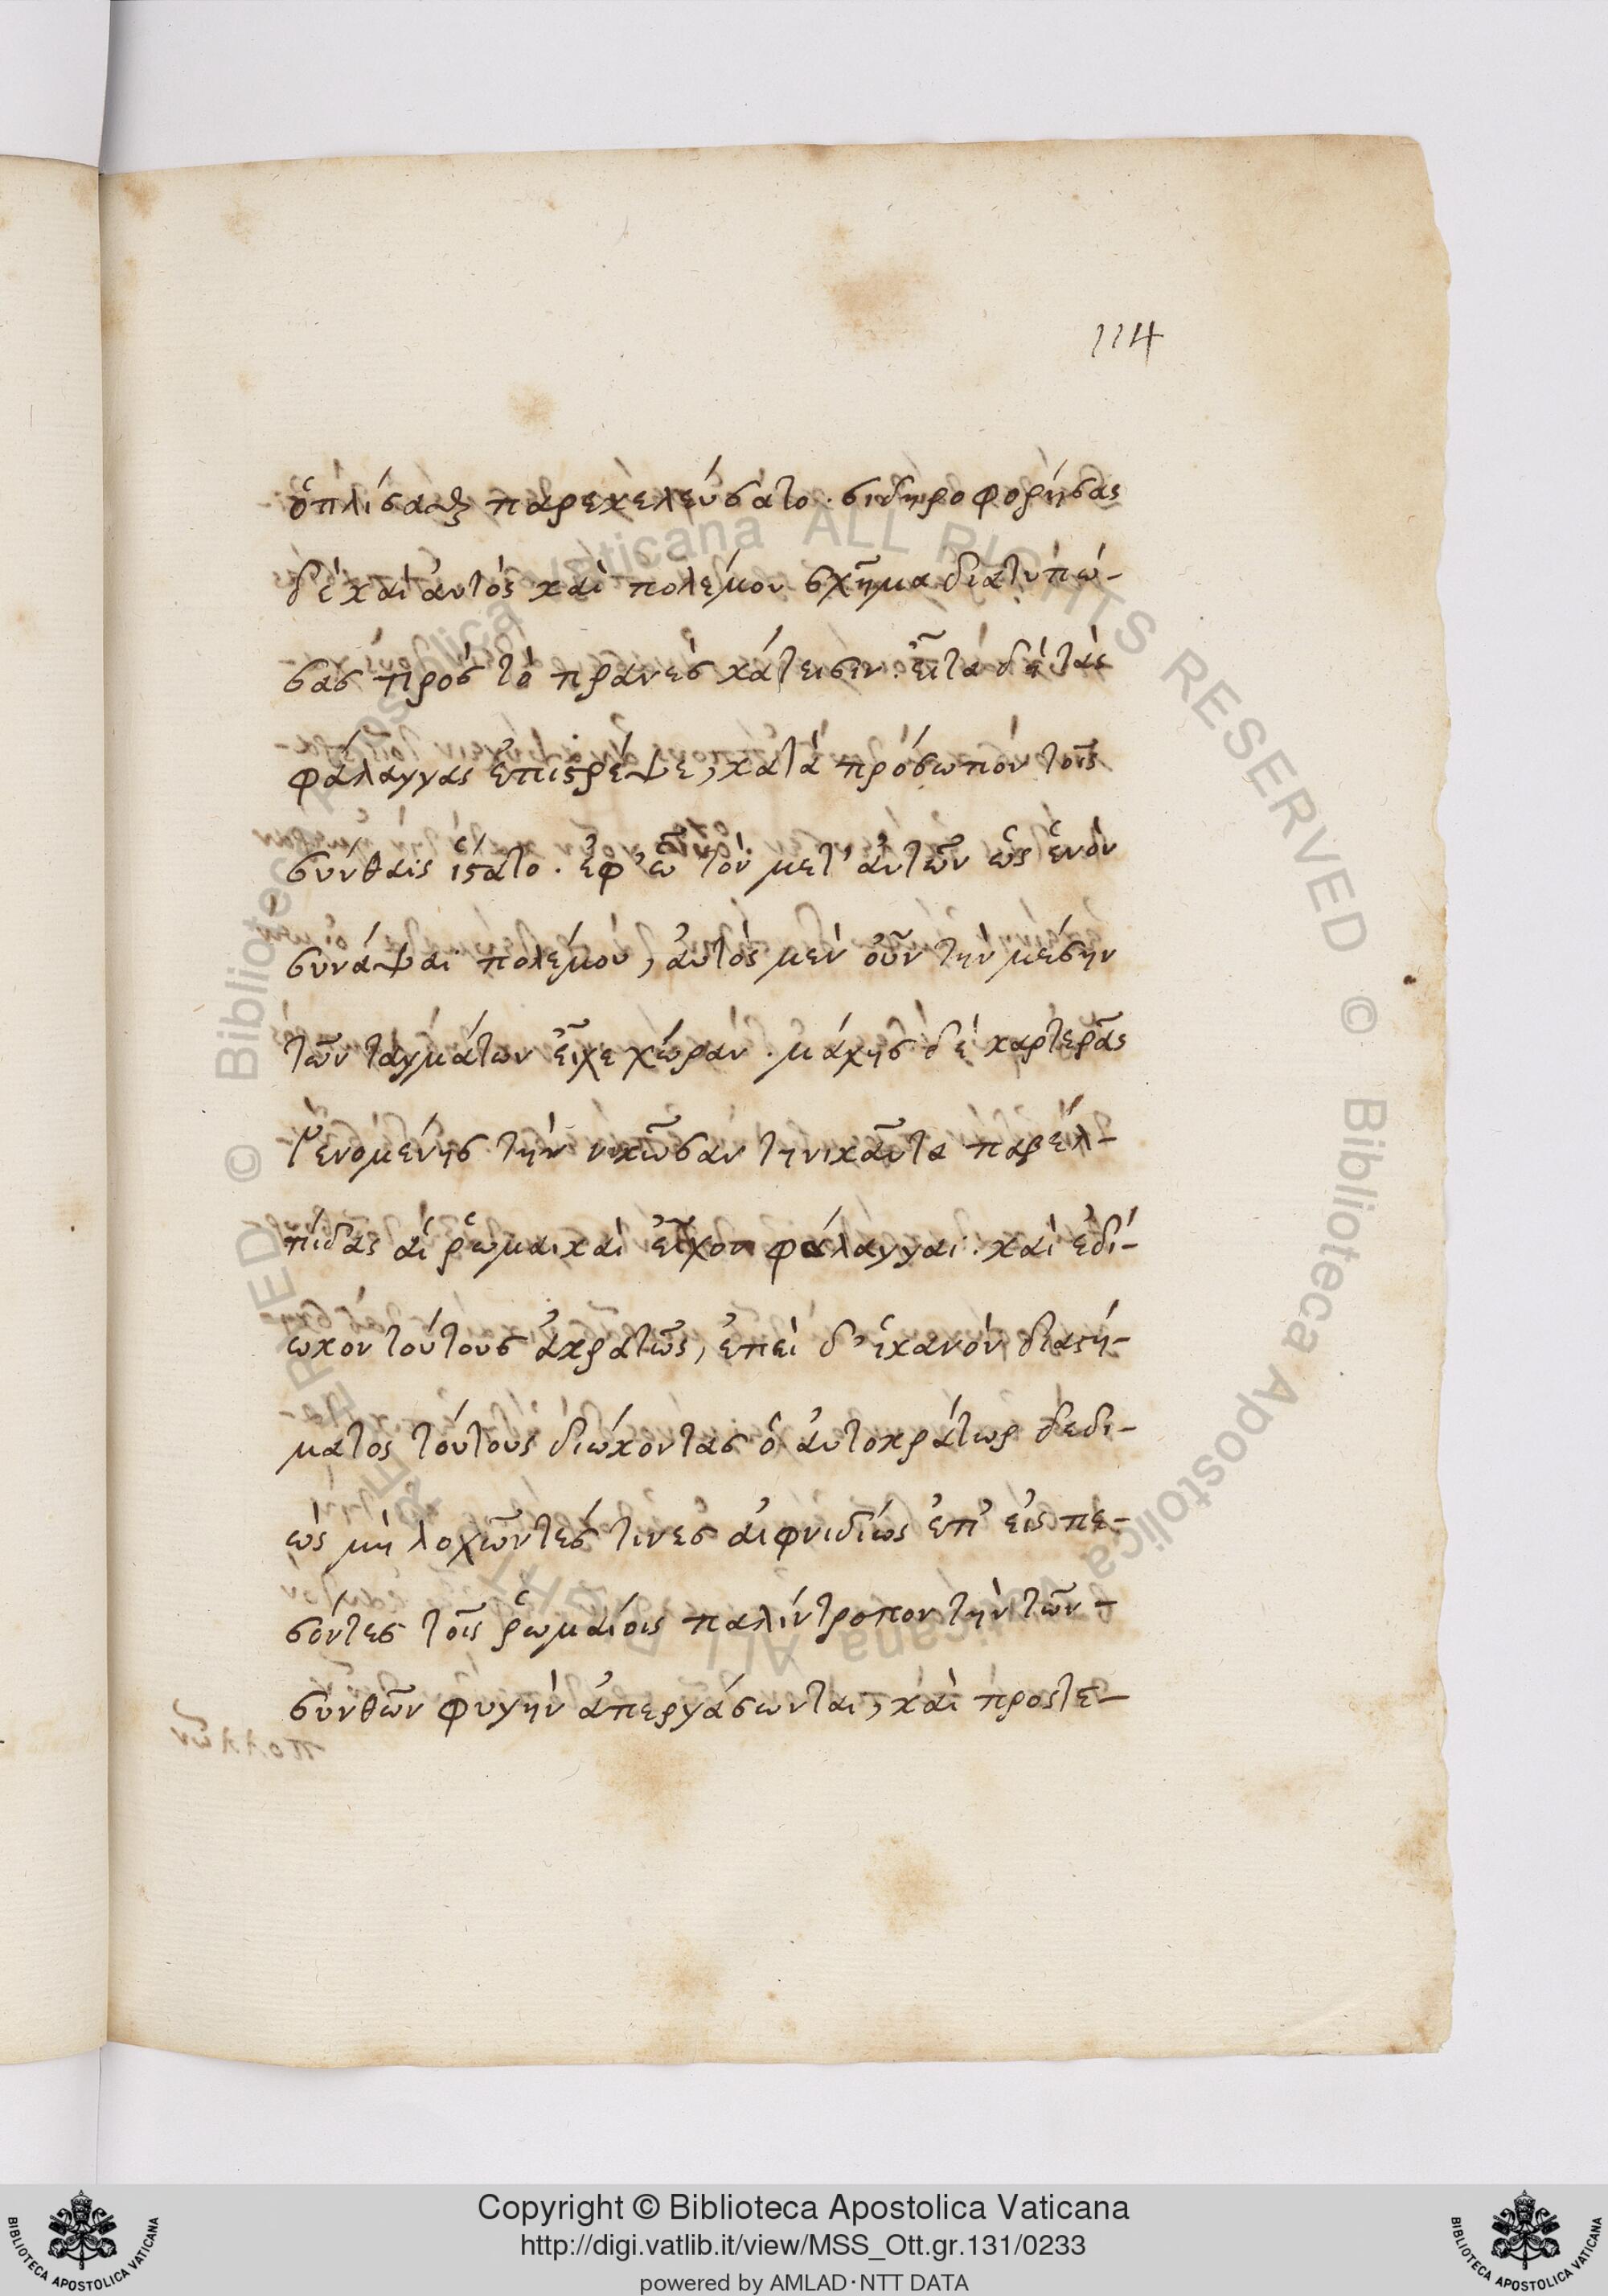 114
ὁπλίσασθαι παρεκελεύσατο. σιδηροφορήσας
δὲ καὶ αὐτὸς καὶ πολέμου σχῆμα διατυπώ-
σας πρὸς τὸ πρανὲς κάτεισιν. εἶτα δὴ τὰς
φάλαγγας ἐπιστρέψε, κατὰ πρόσωπον τοῖς
σύνθαις ἵστατο. ἐφ' ᾧ τὸν μετ' αὐτῶν ὡς ἐνὸν
συνάψαι πολέμου, αὐτὸς μὲν οὖν τὴν μέσην
τῶν ταγμάτων εἶχε χώραν. μάχης δὲ καρτερᾶς
γενομένης τὴν νικῶσαν τηνικαῦτα παρ' ἐλ-
πίδας αἱ ῥωμαικαὶ εἶχον φάλαγγαι. καὶ ἐδί-
ωκον τούτους ἀκρατῶς, ἐπεὶ δ' ἱκανὸν διαστή-
ματος τούτους διώκοντας ὁ αὐτοκράτωρ δεδι-
ὼς μὴ λοχῶντές τινες αἰφνιδίως ἐπ' εἰσπε-
σόντες τοῖς ῥωμαίοις παλίντροπον τὴν τῶν
συνθῶν φυγὴν ἀπεργάσωνται, καὶ προστε-
Copyright © Biblioteca Apostolica Vaticana
http://digi.vatlib.it/view/MSS_Ott.gr.131/0233
powered by AMLAD·NTT DATA
BIBLIOTECA APOSTOLICA VATICANA
BIBLIOTECA APOSTOLICA VATICANA